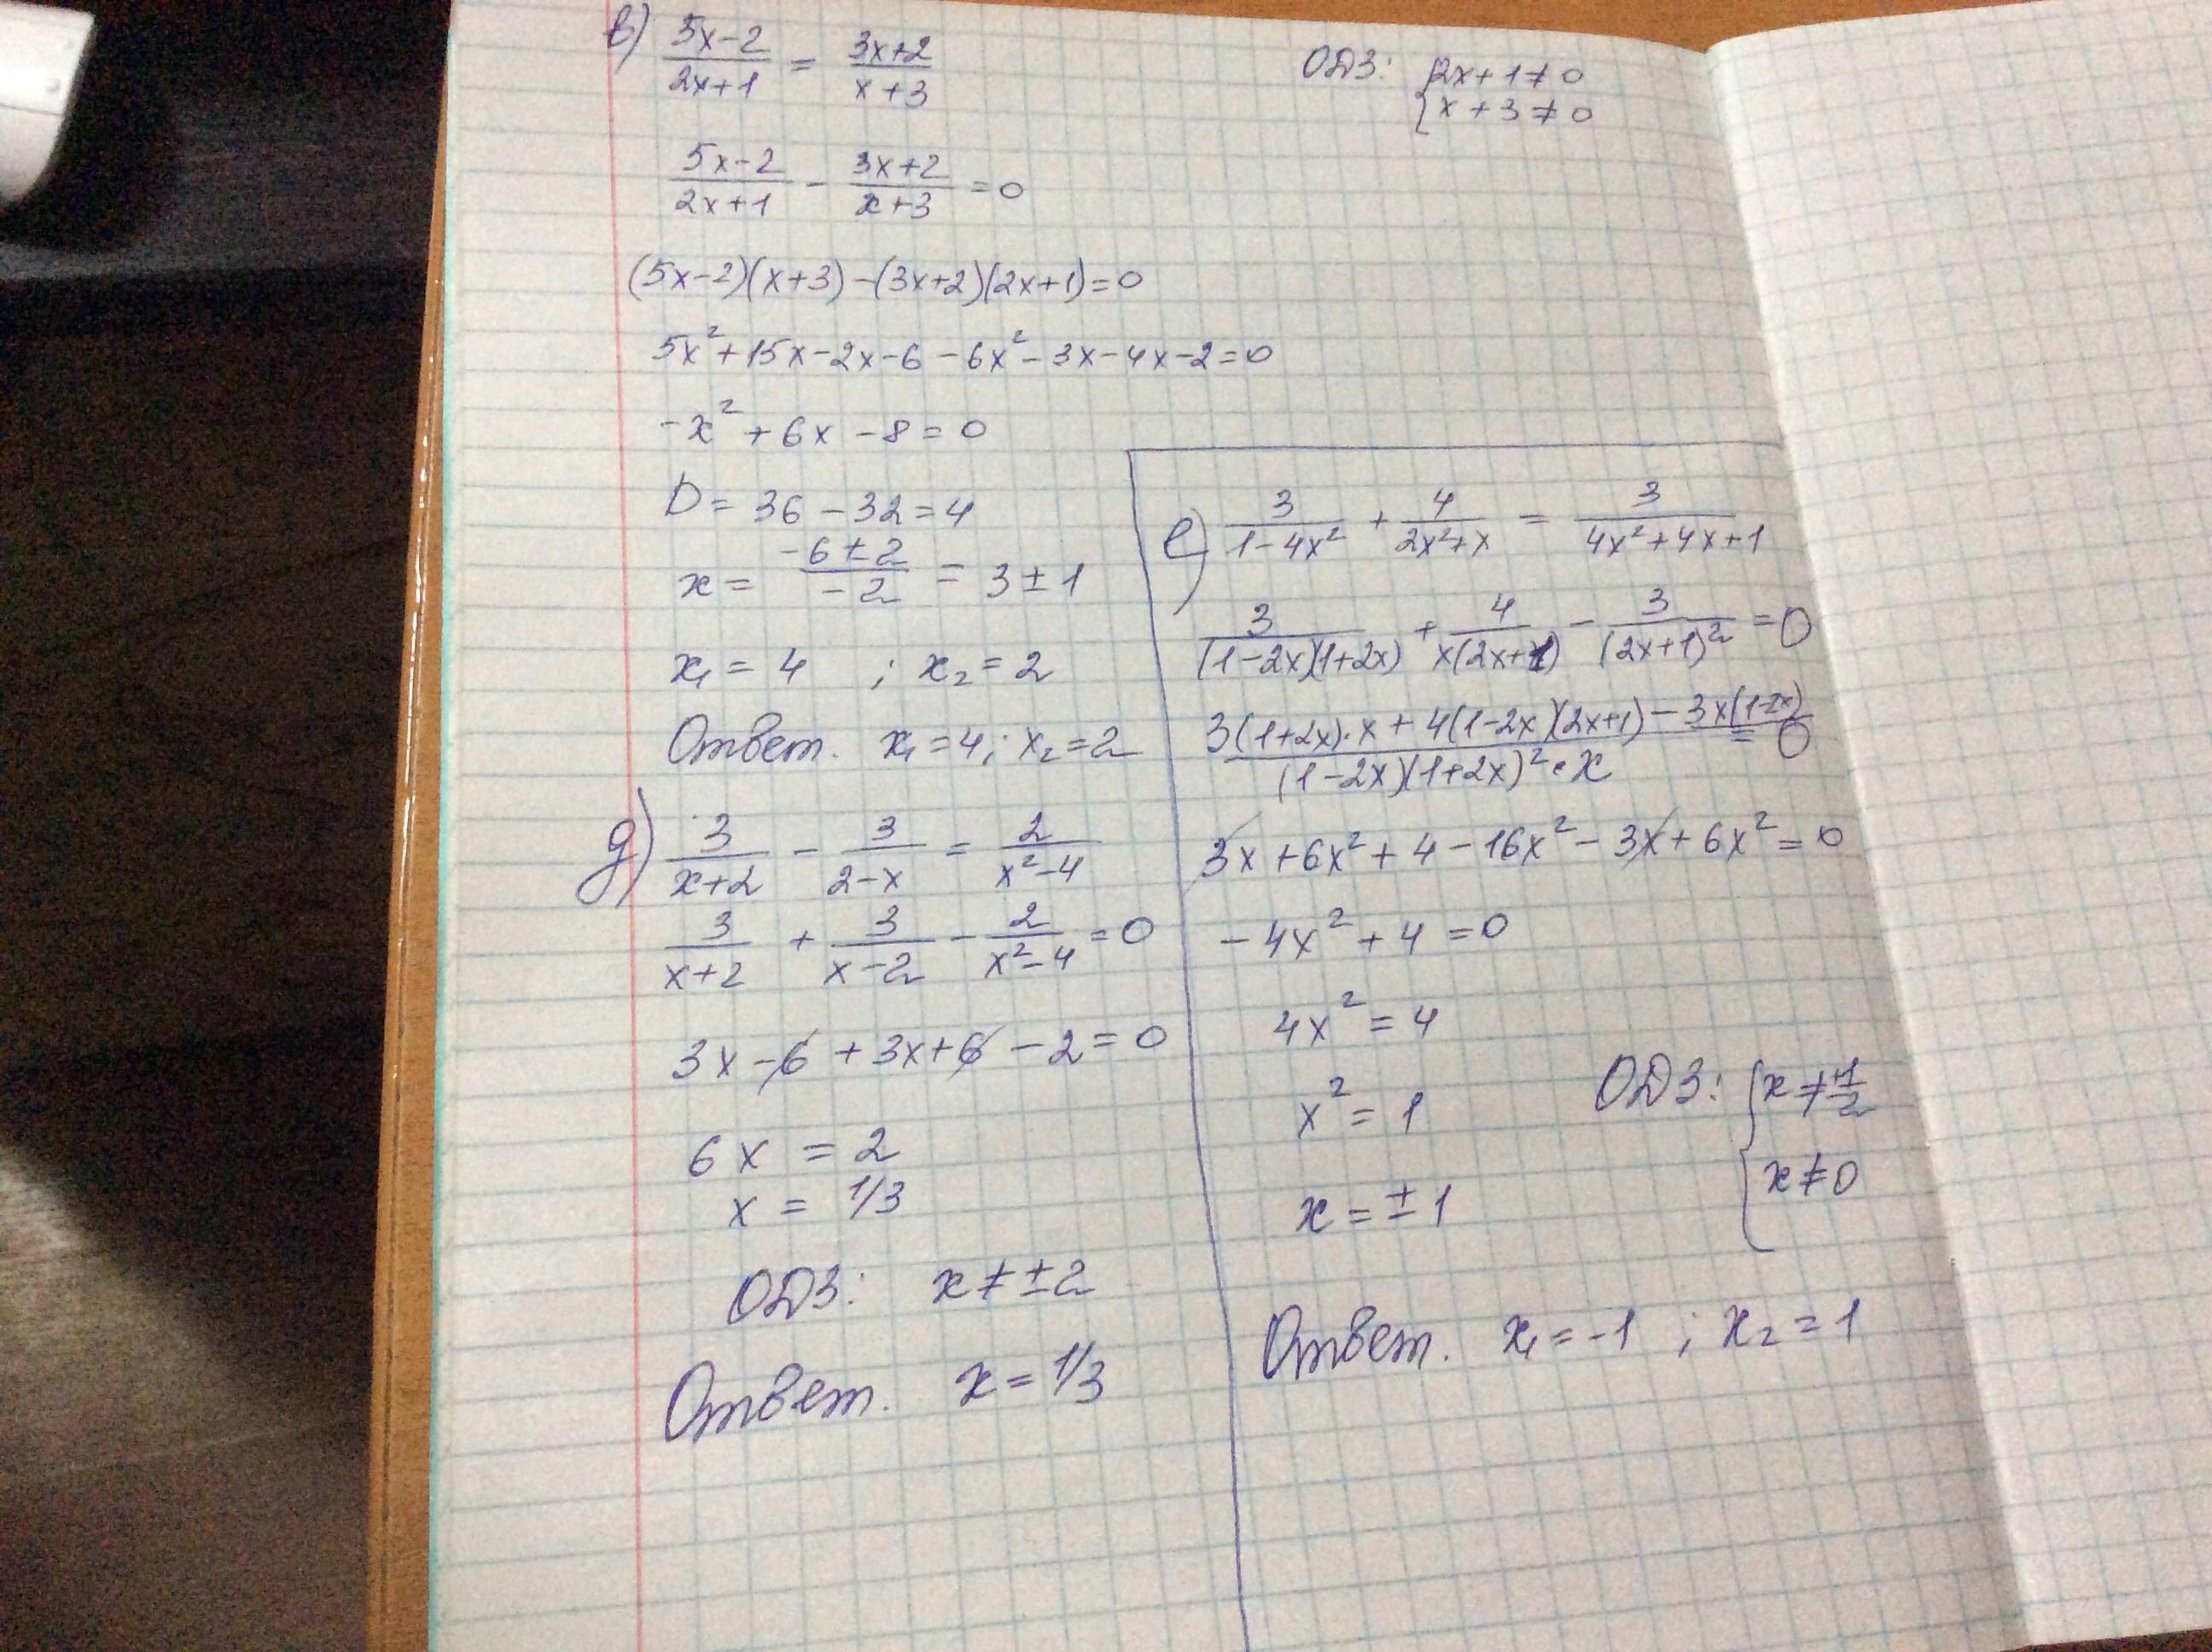 в) (5x-2)/(2x+1) = (3x+2)/(x+3)
ОДЗ: { 2x+1≠0
x+3≠0
(5x-2)/(2x+1) - (3x+2)/(x+3) = 0
(5x-2)(x+3)-(3x+2)(2x+1)=0
5x²+15x-2x-6-6x²-3x-4x-2=0
-x²+6x-8=0
D=36-32=4
x = (-6±2)/(-2) = 3±1
x₁=4 ; x₂=2
Ответ. x₁=4; x₂=2
д) 3/(x+2) - 3/(2-x) = 2/(x²-4)
3/(x+2) + 3/(x-2) - 2/(x²-4) = 0
3x-6+3x+6-2=0
6x = 2
x = 1/3
ОДЗ: x≠±2
Ответ. x=1/3
е) 3/(1-4x²) + 4/(2x²+x) = 3/(4x²+4x+1)
3/((1-2x)(1+2x)) + 4/(x(2x+1)) - 3/((2x+1)²) = 0
(3(1+2x)·x+4(1-2x)(2x+1)-3x(1-2x))/((1-2x)(1+2x)²·x) = 0
3x+6x²+4-16x²-3x+6x²=0
-4x²+4=0
4x²=4
x²=1
ОДЗ: { x≠±1/2
x≠0
x=±1
Ответ. x₁=-1 ; x₂=1